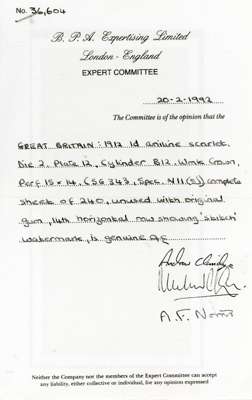 No. 36,604
B. P. A. Expertising Limited
London - England
EXPERT COMMITTEE
20-2-1992
The Committee is of the opinion that the
GREAT BRITAIN: 1912 1d aniline scarlet.
Die 2, Plate 12, Cylinder B12. Wmk Crown,
Perf. 15 x 14. (SG 343, Spec. N11(5)) complete
sheet of 240, unused with original
gum, 14th horizontal row showing 'stitch'
watermark, is genuine
Andrew
A. F. Norris
Neither the Company nor the members of the Expert Committee can accept
any liability, either collective or individual, for any opinion expressed